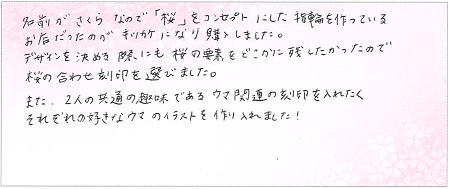 名前がさくらなので「桜」をコンセプトにした指輪を作っている
お店だったのがキッカケになり購入しました。
デザインを決める際にも桜の要素をどこかに残したかったので
桜の合わせ刻印を選びました。
また、2人の共通の趣味であるウマ関連の刻印を入れたく
それぞれの好きなウマのイラストを作り入れました！